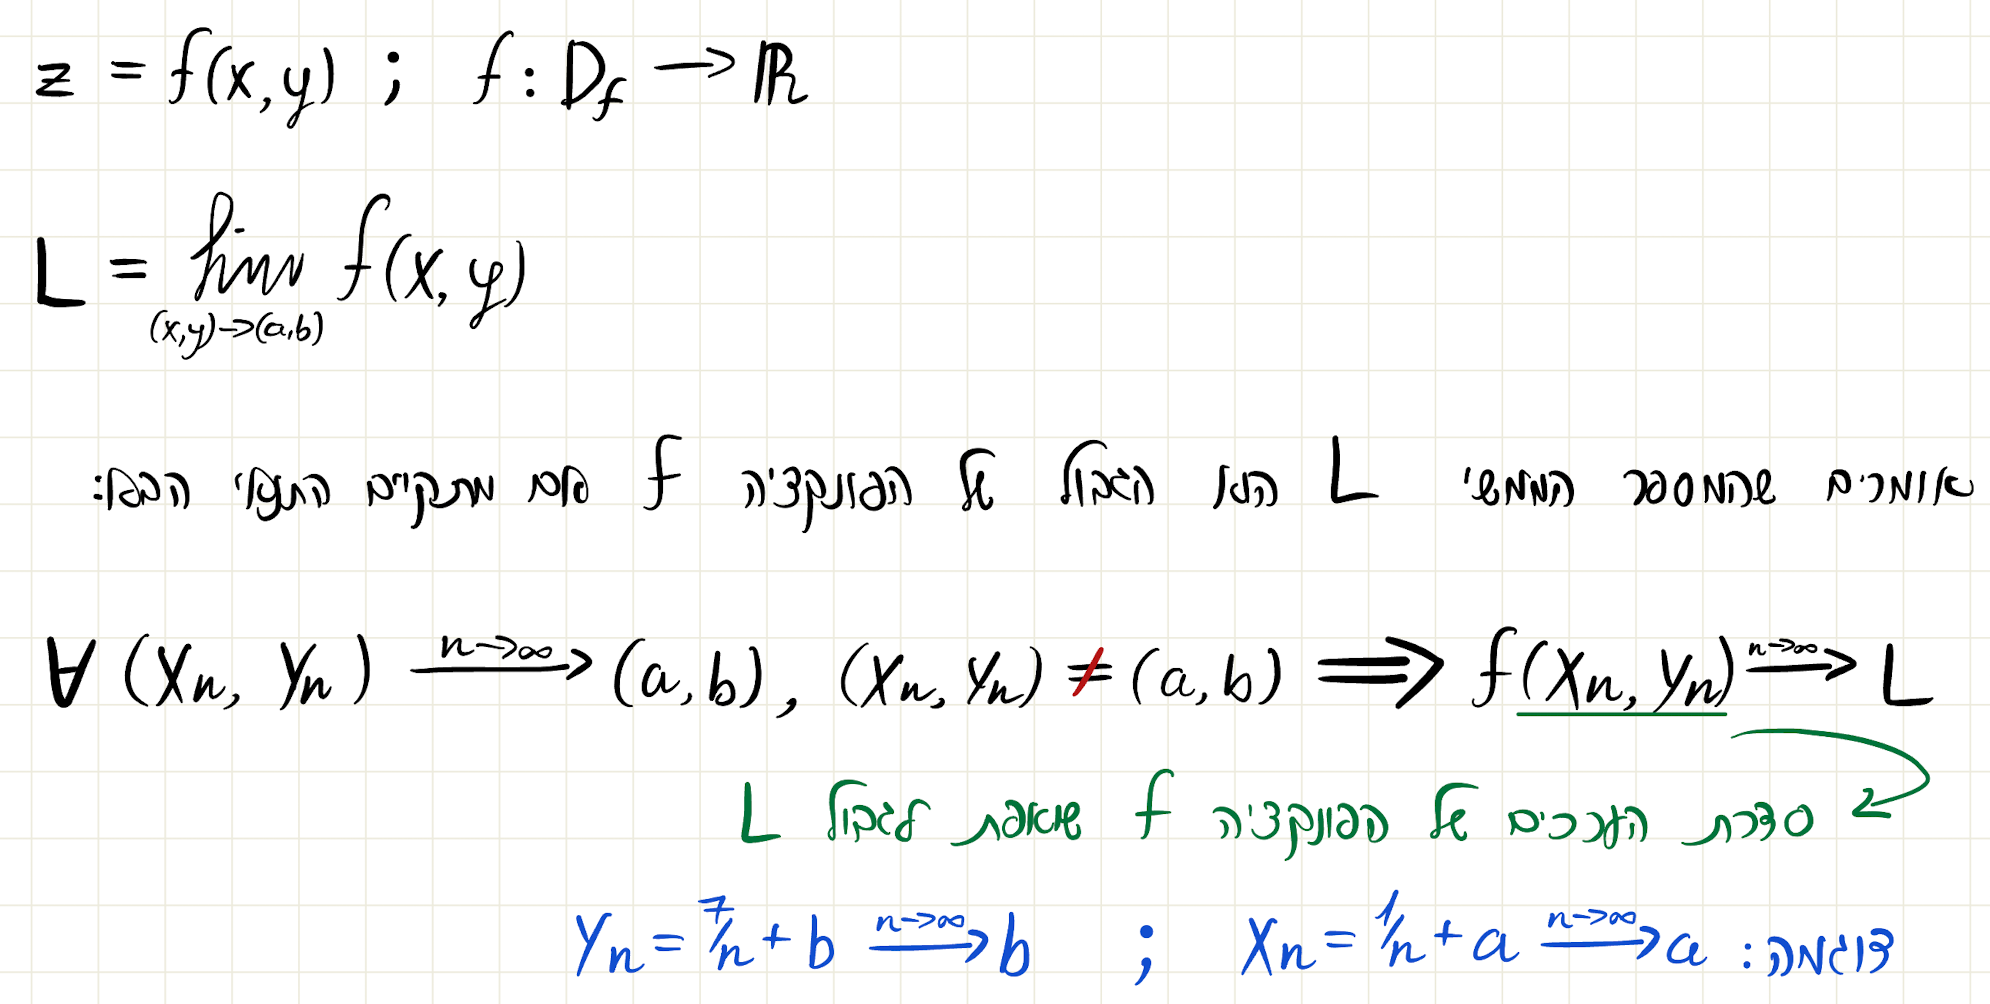 z = f(x,y) ; f: D_f → ℝ
L = lim f(x,y)
(x,y)→(a,b)
אומרים שהמספר הממשי L הוא הגבול של הפונקציה f אם מתקיים התנאי הבא:
∀ (Xn, Yn) —n→∞→ (a,b), (Xn, Yn) ≠ (a,b) ⟹ f(Xn, Yn) —n→∞→ L
סדרת הערכים של הפונקציה f שואפת לגבול L
דוגמה: Xn = 1/n + a —n→∞→ a ; Yn = 7/n + b —n→∞→ b